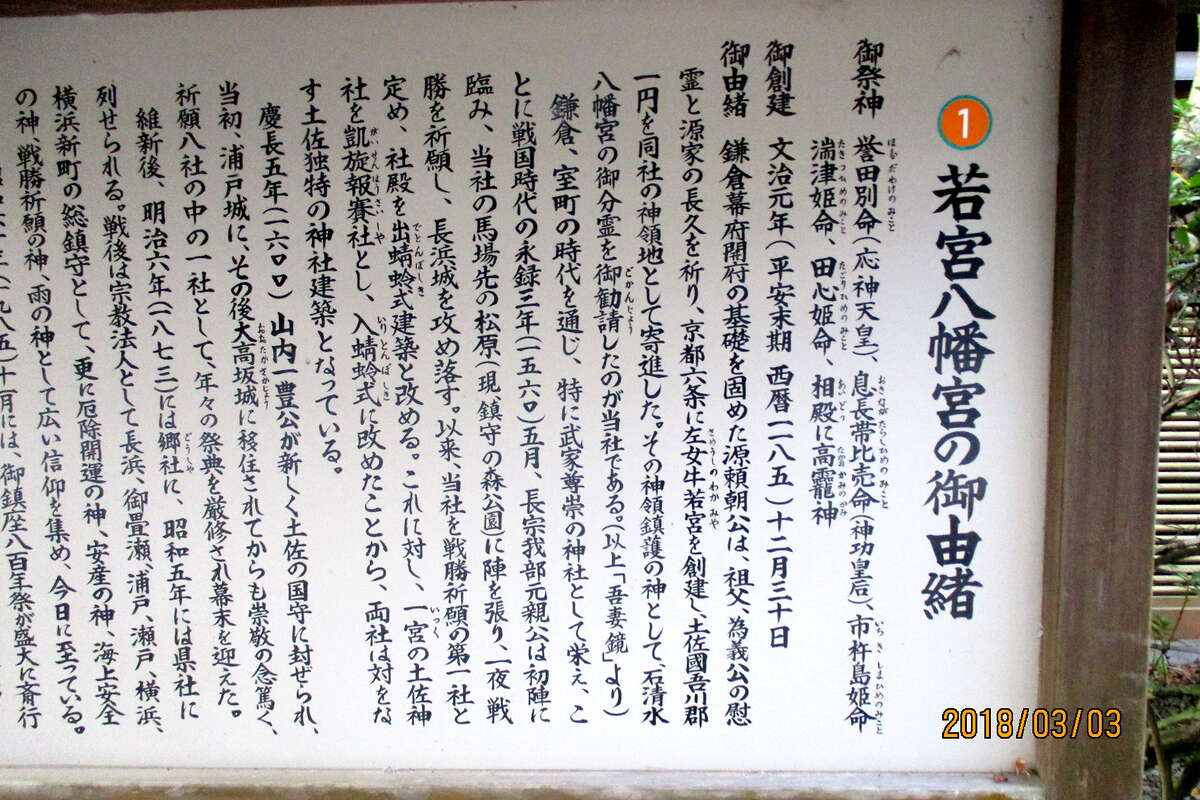 1 若宮八幡宮の御由緒
御祭神 誉田別命(応神天皇)、息長帯比売命(神功皇后)、市杵島姫命
湍津姫命、田心姫命、相殿に高龗神
御創建 文治元年(平安末期 西暦一一八五)十二月三十日
御由緒 鎌倉幕府開府の基礎を固めた源頼朝公は、祖父、為義公の慰
霊と源家の長久を祈り、京都六条に左女牛若宮を創建し、土佐國吾川郡
一円を同社の神領地として寄進した。その神領鎮護の神として、石清水
八幡宮の御分霊を御勧請したのが当社である。(以上「吾妻鏡」より)
鎌倉、室町の時代を通じ、特に武家尊崇の神社として栄え、こ
とに戦国時代の永録三年(一五六〇)五月、長宗我部元親公は初陣に
臨み、当社の馬場先の松原(現、鎮守の森公園)に陣を張り、一夜戦
勝を祈願し、長浜城を攻め落す。以来、当社を戦勝祈願の第一社と
定め、社殿を出蜻蛉式建築と改める。これに対し、一宮の土佐神
社を凱旋報賽社とし、入蜻蛉式に改めたことから、両社は対をな
す土佐独特の神社建築となっている。
慶長五年(一六〇〇)山内一豊公が新しく土佐の国守に封ぜられ、
当初、浦戸城に、その後大高坂城に移住されてからも崇敬の念篤く、
祈願八社の中の一社として、年々の祭典を厳修され幕末を迎えた。
維新後、明治六年(一八七三)には郷社に、昭和五年には県社に
列せられる。戦後は宗教法人として長浜、御畳瀬、浦戸、瀬戸、横浜、
横浜新町の総鎮守として、更に厄除開運の神、安産の神、海上安全
の神、戦勝祈願の神、雨の神として広い信仰を集め、今日に至っている。
(一九八五)十一月には、御鎮座八百年祭が盛大に斉行
2018/03/03